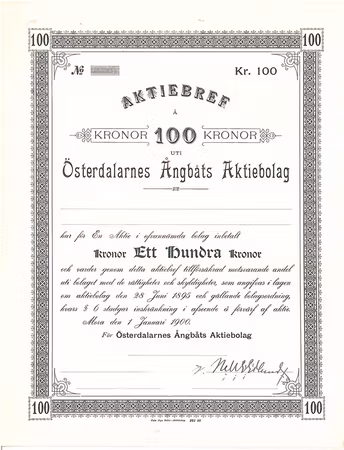 100 100
№ Kr. 100
AKTIEBREF
Å
KRONOR 100 KRONOR
UTI
Österdalarnes Ångbåts Aktiebolag
har för En Aktie i ofvannämda bolag inbetalt
Kronor Ett Hundra Kronor
och varder genom detta aktiebref tillförsäkrad motsvarande andel
uti bolaget med de rättigheter och skyldigheter, som angifvas i lagen
om aktiebolag den 28 Juni 1895 och gällande bolagsordning,
hvars § 6 stadgar inskränkning i afseende å förvärf af aktie.
Mora den 1 Januari 1900.
För Österdalarnes Ångbåts Aktiebolag
100 100